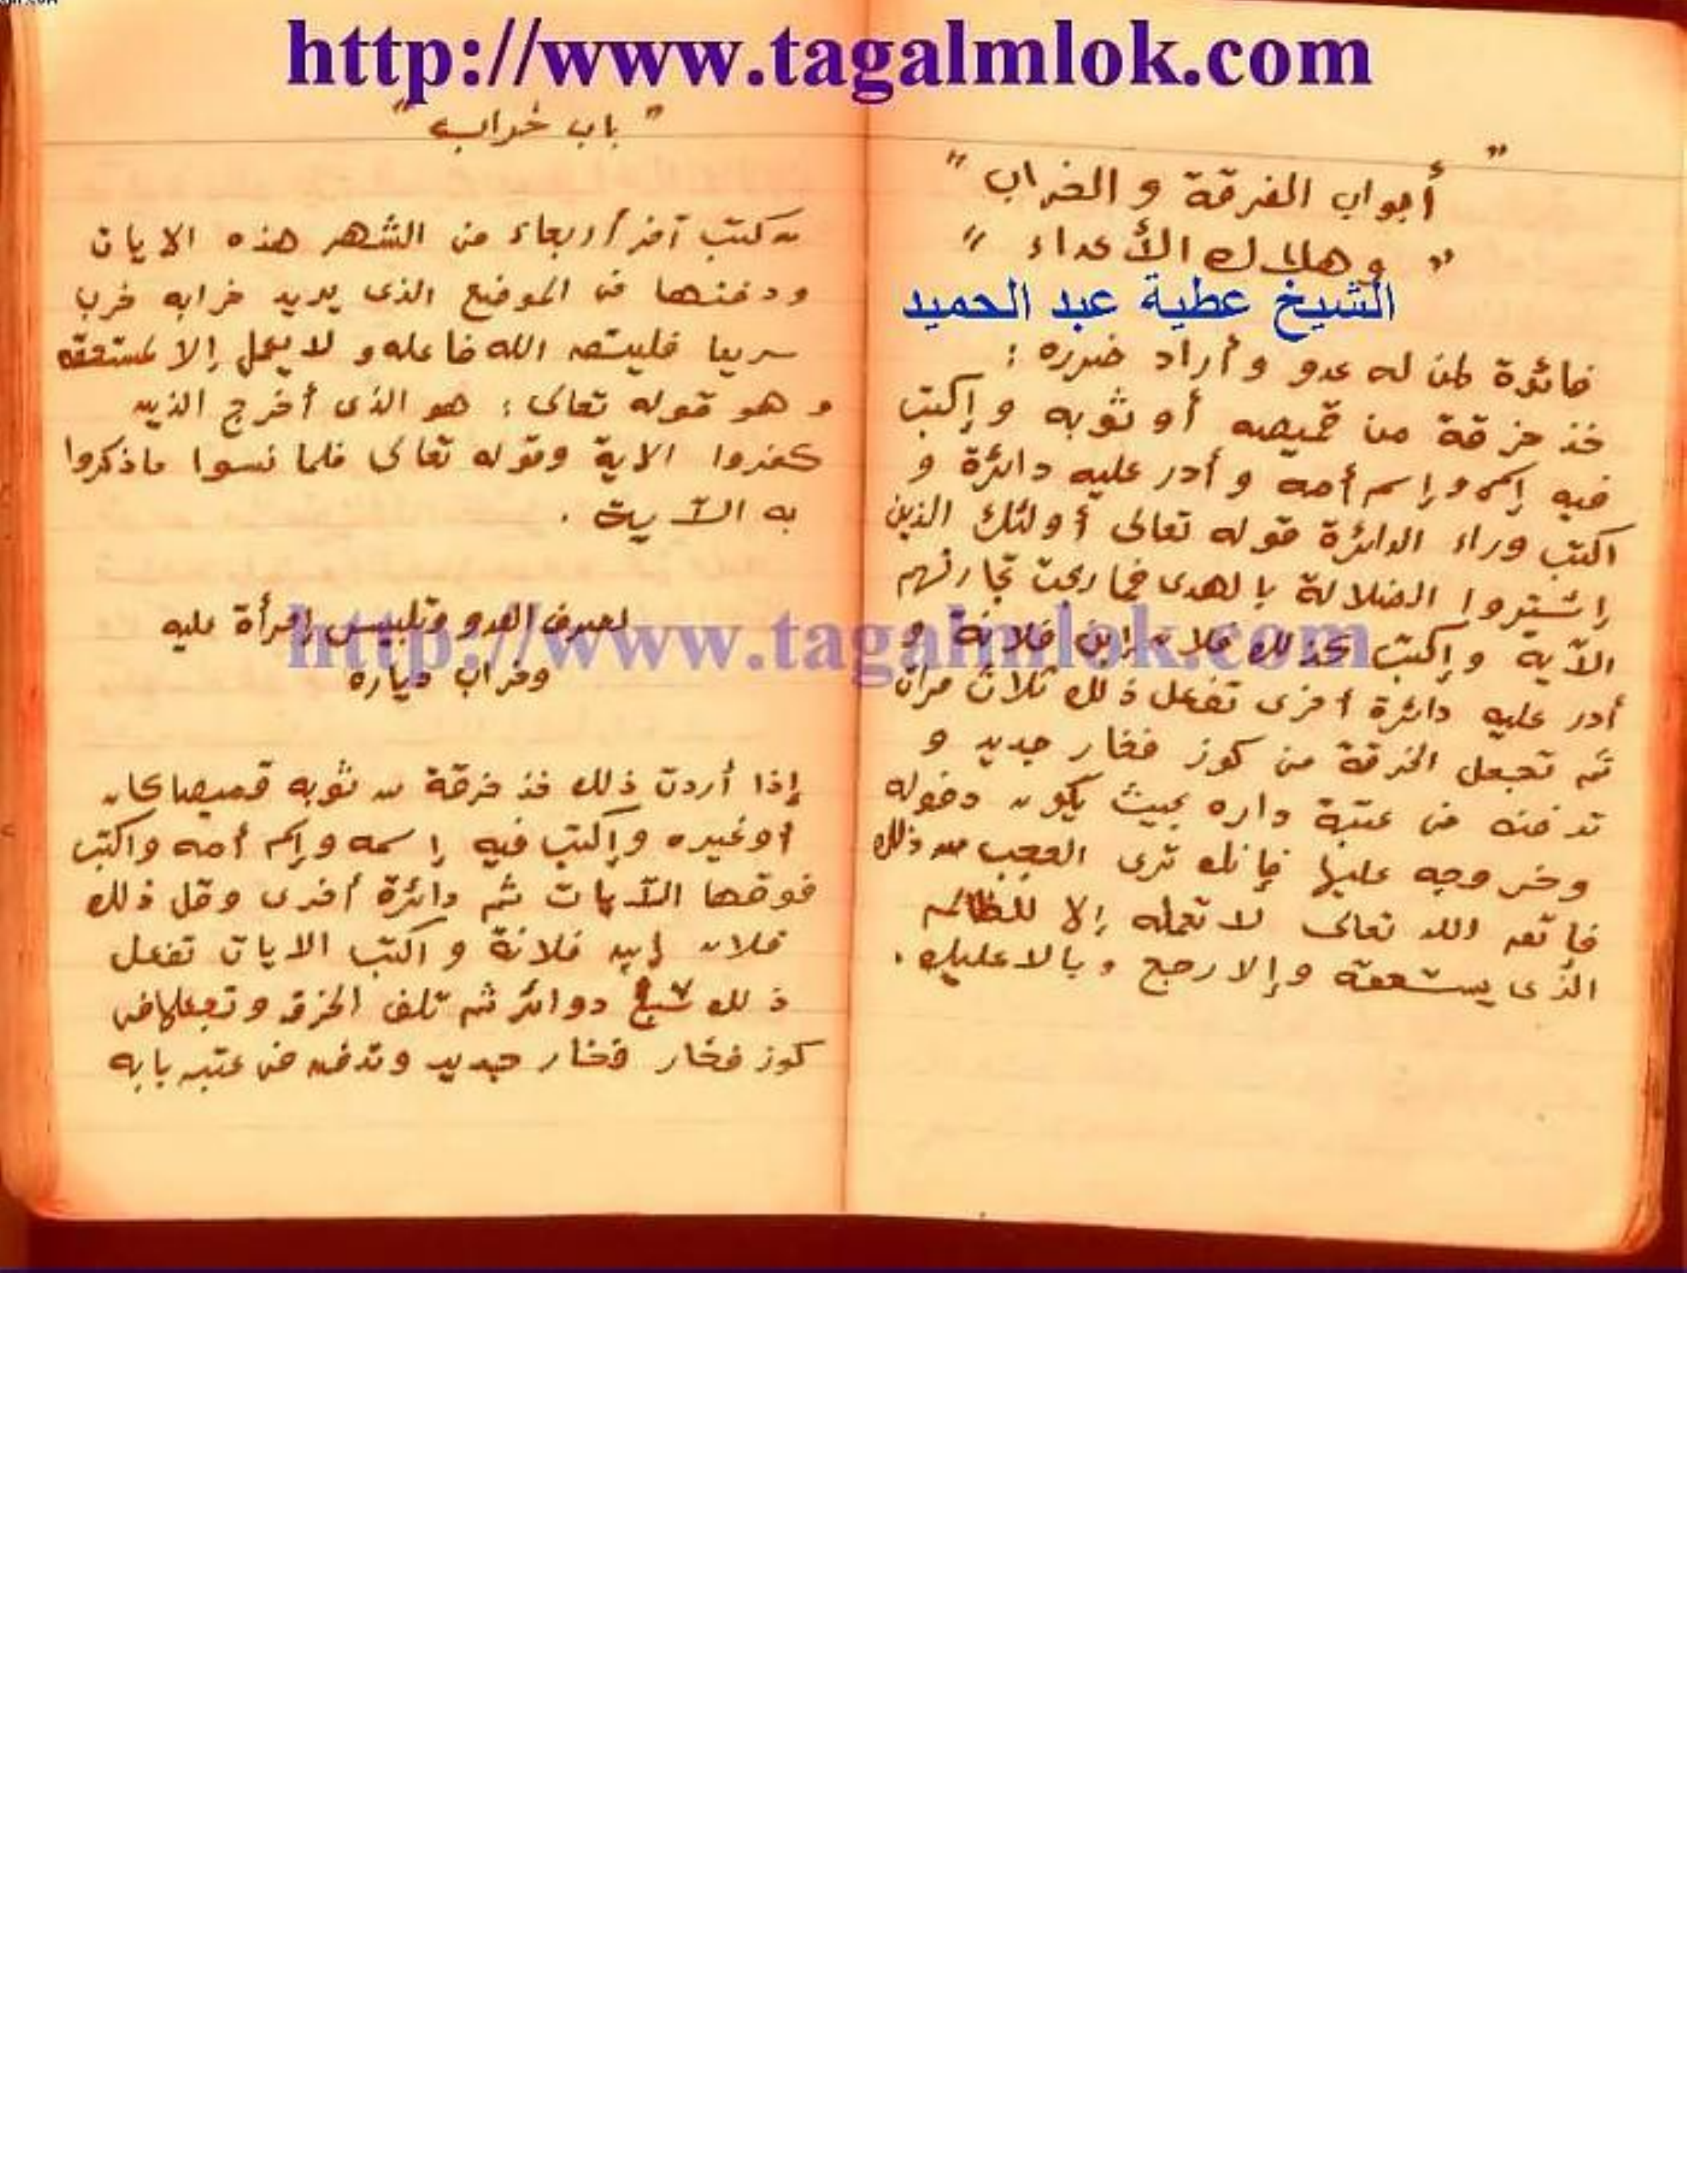 http://www.tagalmlok.com
" أبواب الفرقة و الخراب "
" وهلاك الأعداء "
الشيخ عطية عبد الحميد
فائدة لمن له عدو وأراد ضرره :
خذ خرقة من قميصه أو ثوبه وإكتب
فيه إسمه وإسم أمه و أدر عليه دائرة و
اكتب وراء الدائرة قوله تعالى أولئك الذين
إشتروا الضلالة بالهدى فما ربحت تجارتهم
الآية وإكتب كذلك فلان إبن فلانة و
أدر عليه دائرة أخرى تفعل ذلك ثلاث مرات
ثم تجعل الخرقة من كوز فخار جديد و
تدفنه فى عتبة داره بحيث يكون دخوله
وخروجه عليها فإنك ترى العجب من ذلك
فإتق الله تعالى لا تعمله إلا للظالم
الذى يستحقه وإلا رجع وبالا عليك .
" باب خراب "
من كتب آخر أربعاء من الشهر هذه الايات
ودفنها فى الموضع الذى يريد خرابه خرب
سريعا فليتق الله فاعله و لا يعمل إلا لمستحقه
و هو قوله تعالى : هو الذى أخرج الذين
كفروا الاية وقوله تعالى فلما نسوا ماذكروا
به الآية .
http://www.tagalmlok.com
لصرف العدو وتلبيس إمرأة عليه
وخراب دياره
إذا أردت ذلك خذ خرقة من ثوبه قميصا كان
أوغيره وإكتب فيه إسمه وإسم أمه واكتب
فوقها الآيات ثم دائرة أخرى وقل ذلك
فلان إبن فلانة و اكتب الايات تفعل
ذلك سبع دوائر ثم تلف الخرقة وتجعلها فى
كوز فخار فخار جديد وتدفن فى عتبه بابه